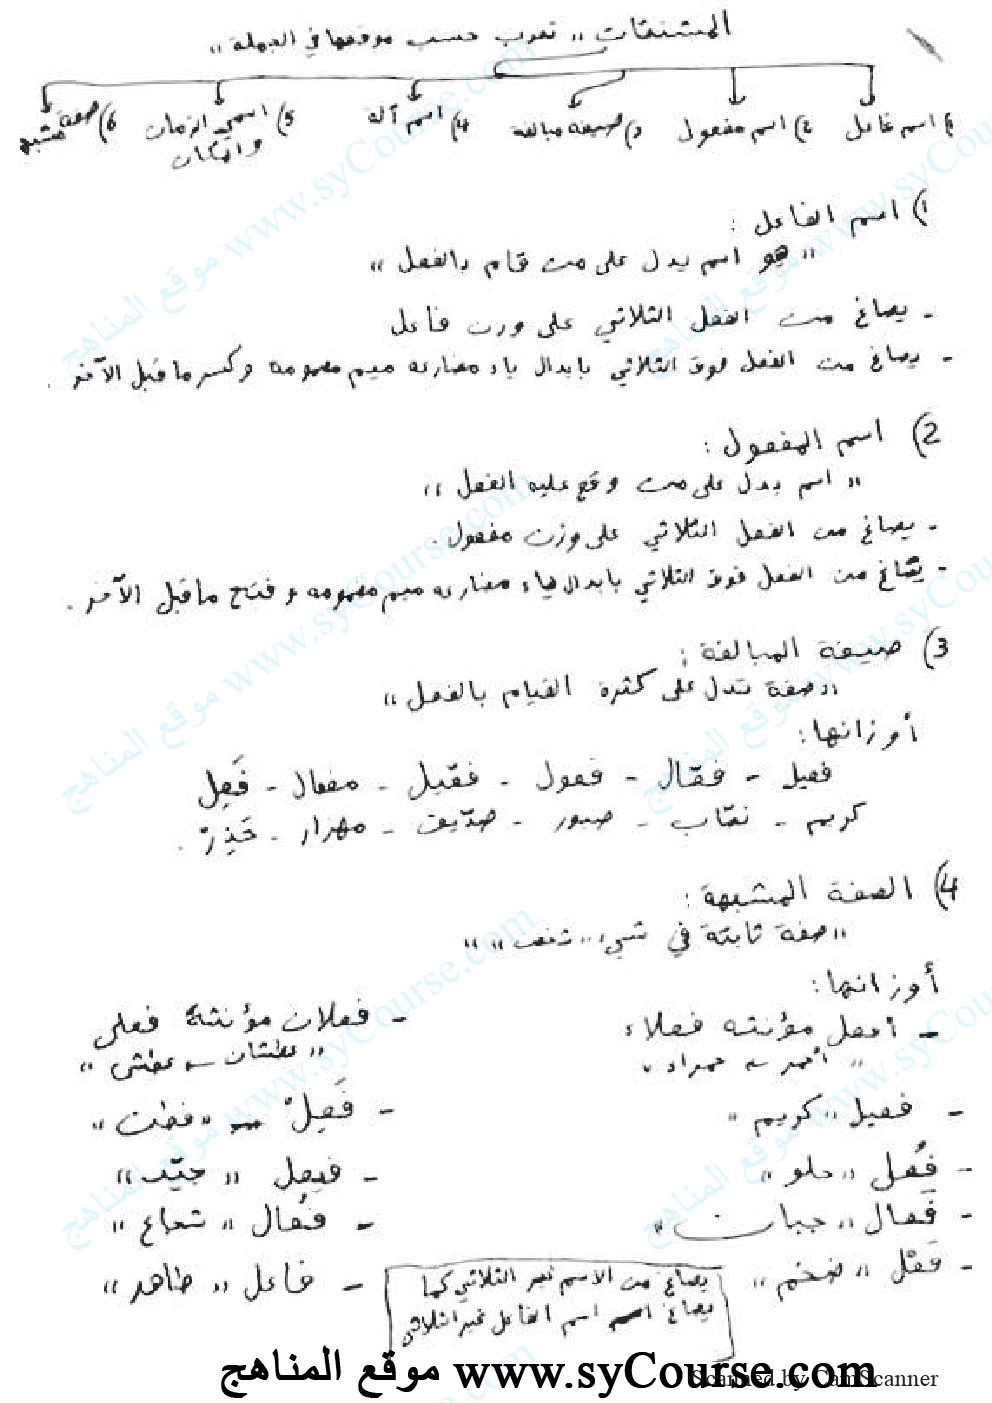 المشتقات " تعرب حسب موقعها في الجملة "
1) اسم فاعل 2) اسم مفعول 3) صيغة مبالغة 4) اسم آلة 5) اسمي الزمان والمكان 6) صفة مشبهة
1) اسم الفاعل :
" هو اسم يدل على من قام بالفعل "
- يصاغ من الفعل الثلاثي على وزن فاعل
- يصاغ من الفعل فوق الثلاثي بابدال ياء مضارعه ميم مضمومه وكسر ما قبل الآخر .
2) اسم المفعول :
" اسم يدل على من وقع عليه الفعل "
- يصاغ من الفعل الثلاثي على وزن مفعول .
- يصاغ من الفعل فوق الثلاثي بابدال ياء مضارعه ميم مضمومه و فتح ما قبل الآخر .
3) صيغة المبالغة :
" صفة تدل على كثرة القيام بالفعل "
أوزانها :
فعيل - فعّال - فعول - فعّيل - مفعال - فَعِل
كريم - نقّاب - صبور - صدّيق - مهزار - حَذِرٌ .
4) الصفة المشبهة :
" صفة ثابتة في شيء "
أوزانها :
- أفعل مؤنثه فعلاء - فعلان مؤنثة فعلى
" أحمر حمراء " " عطشان عطشى "
- فعيل " كريم " - فَعِلْ " فطن "
- فُعل " حلو " - فيعل " جيّد "
- فَعال " جبان " - فُعال " شجاع "
- فَعْل " ضخم " - فاعل " طاهر "
يصاغ من الاسم غير الثلاثي كما
يصاغ اسم الفاعل غير الثلاثي
موقع المناهج www.syCourse.com
Scanned by CamScanner